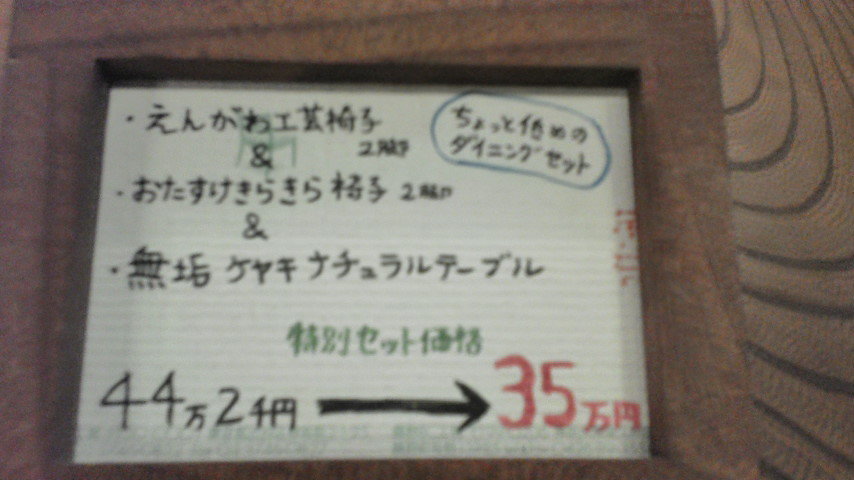 ・えんがわ工芸椅子
2脚
ちょっと低めの
ダイニングセット
&
・おたすけきらきら椅子 2脚
&
・無垢 ケヤキナチュラルテーブル
特別セット価格
44万2千円 → 35万円